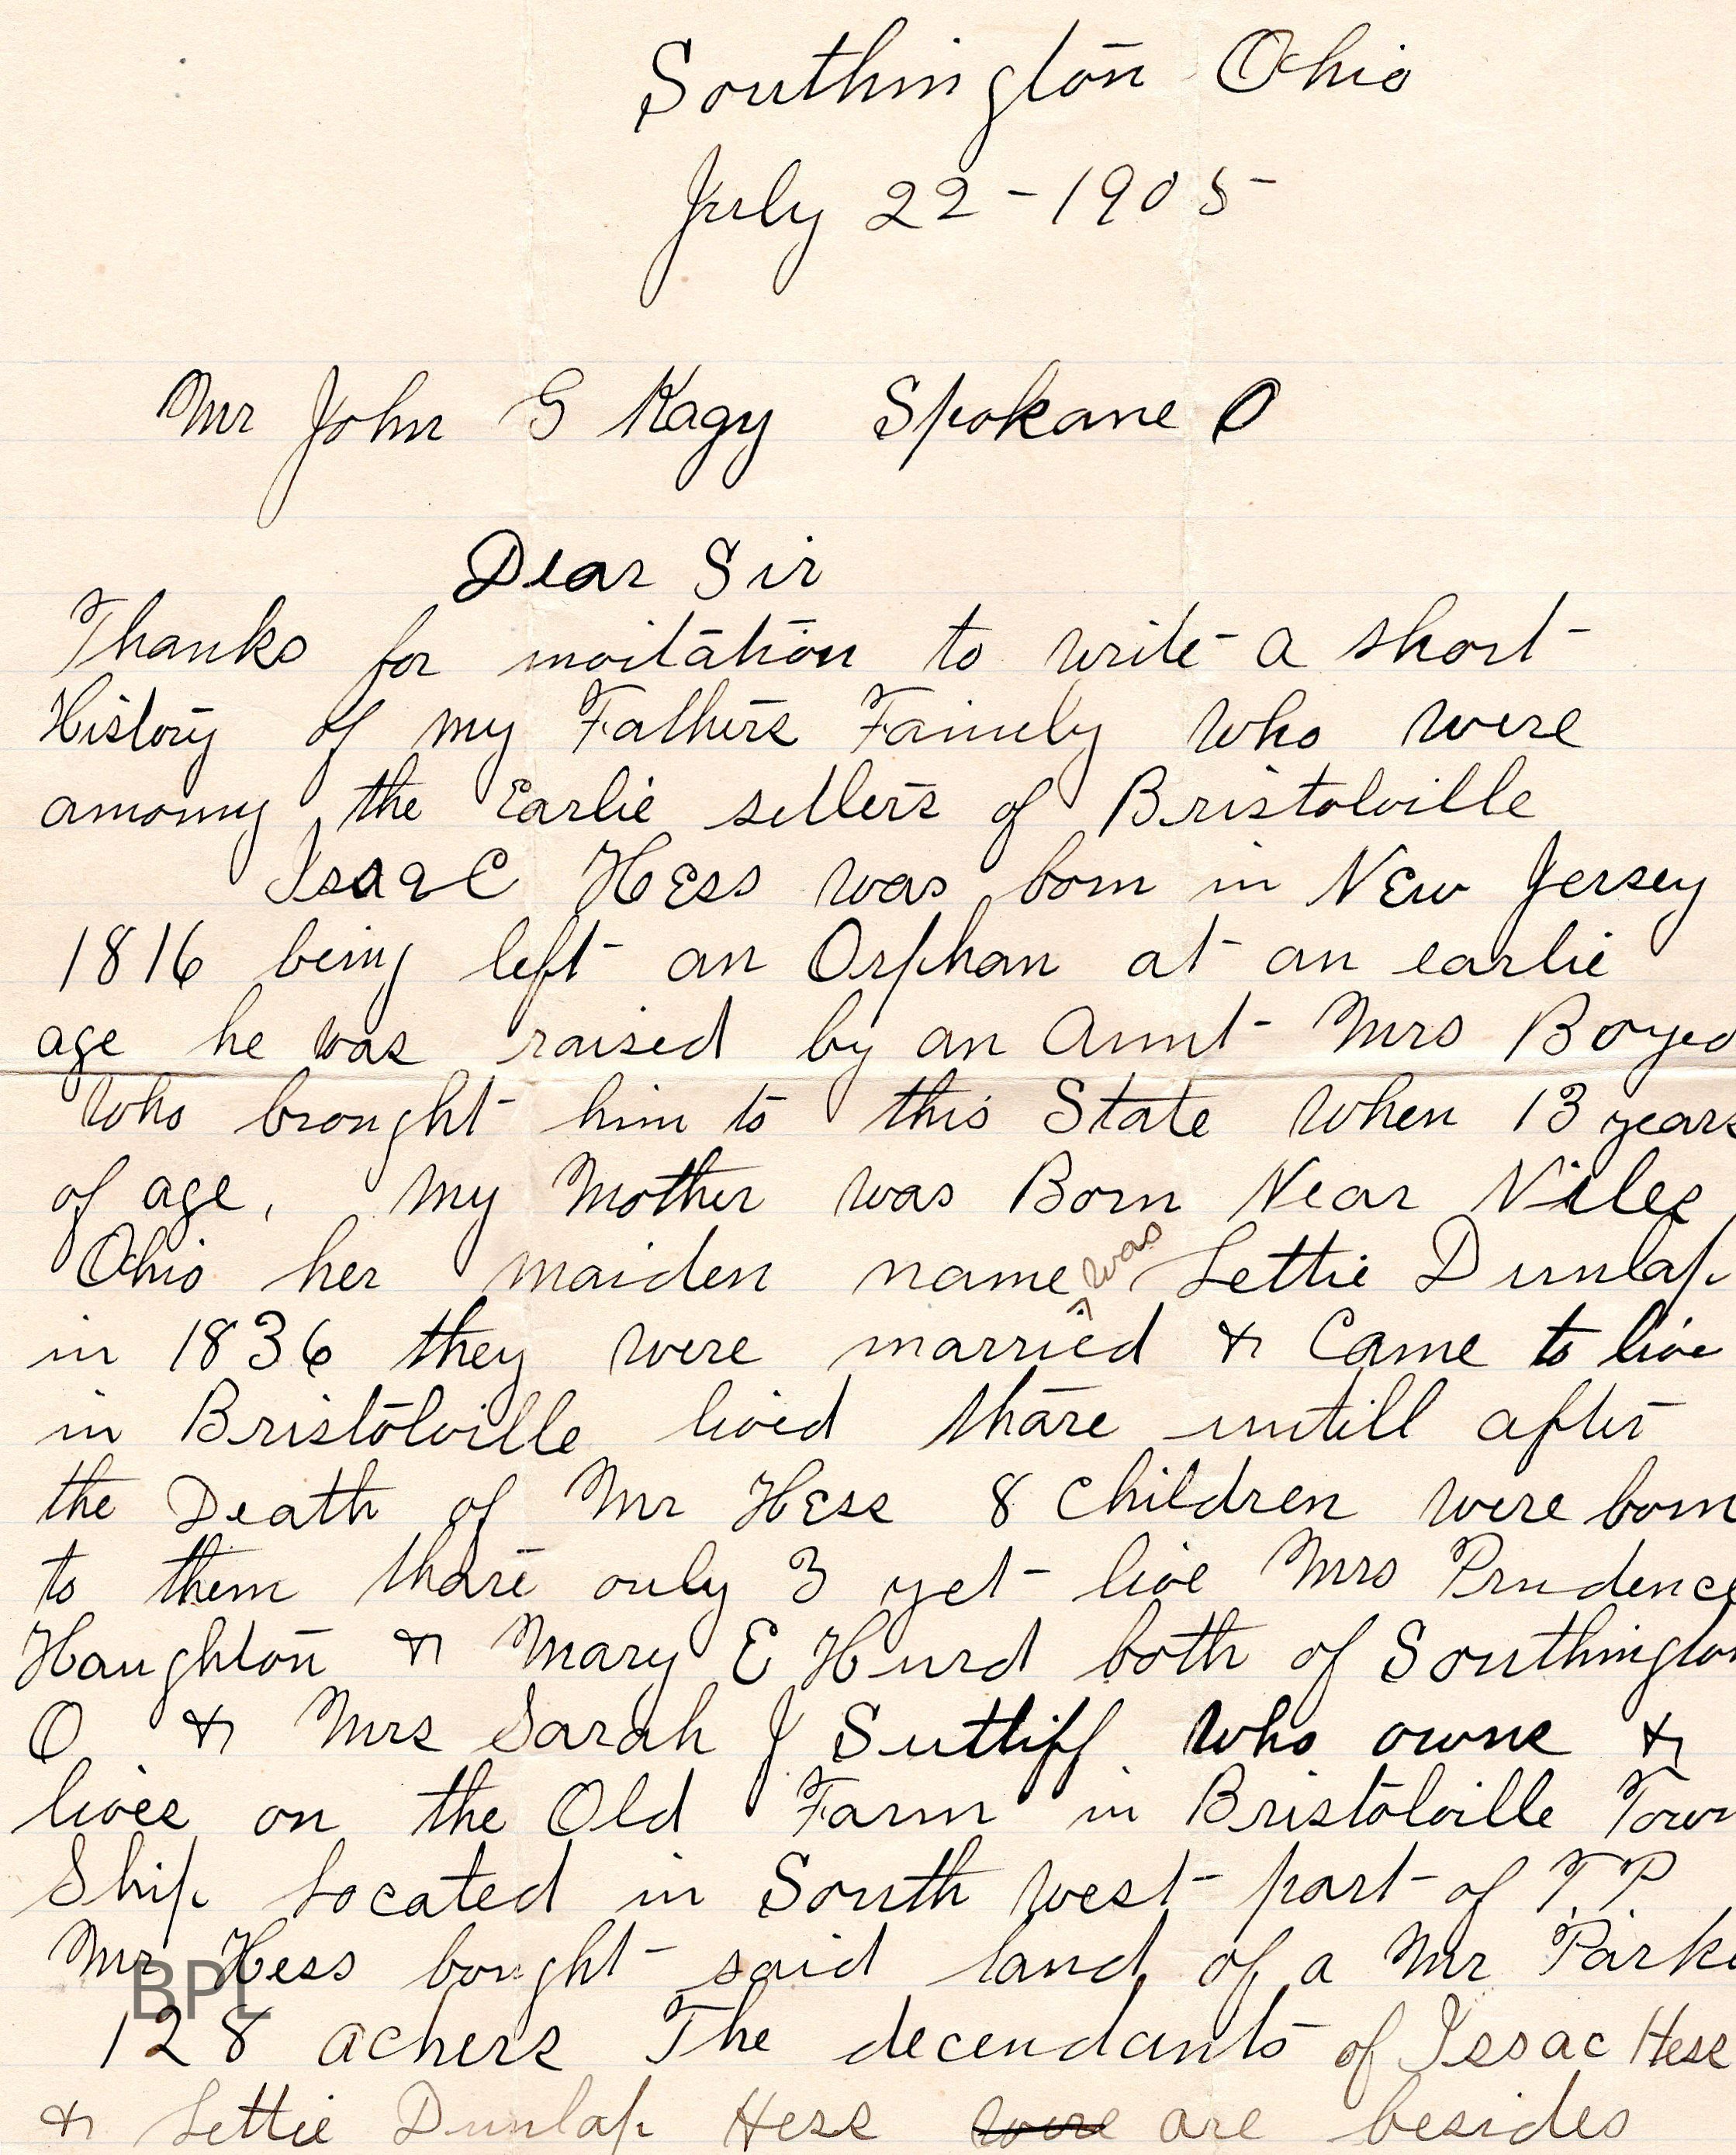 Southington Ohio
July 22-1905
Mr John G Kagy Spokane O
Dear Sir
Thanks for invitation to write a short
History of my Fathers Famely who were
amonny the Earlie settlers of Bristolville
Isaac Hess was born in New Jersey
1816 being left an Orphan at an earlie
age he was raised by an Aunt Mrs Boyed
who brought him to this State when 13 years
of age, my Mother was Born Near Niles,
Ohio her maiden name was Lettie Dunlap
in 1836 they were married & Came to live
in Bristolville lived thare untill after
the Death of Mr Hess 8 children were born
to them thare only 3 yet live Mrs Prudence
Haughton & Mary E Hurd both of Southington
O & Mrs Sarah J Sutliff who owns &
lives on the Old Farm in Bristolville Town
Ship Located in South west part of T.P.
Mr Hess bought said land of a Mr Parke
128 achers The decendants of Issac Hess
& Lettie Dunlap Hess were are besides
BPL